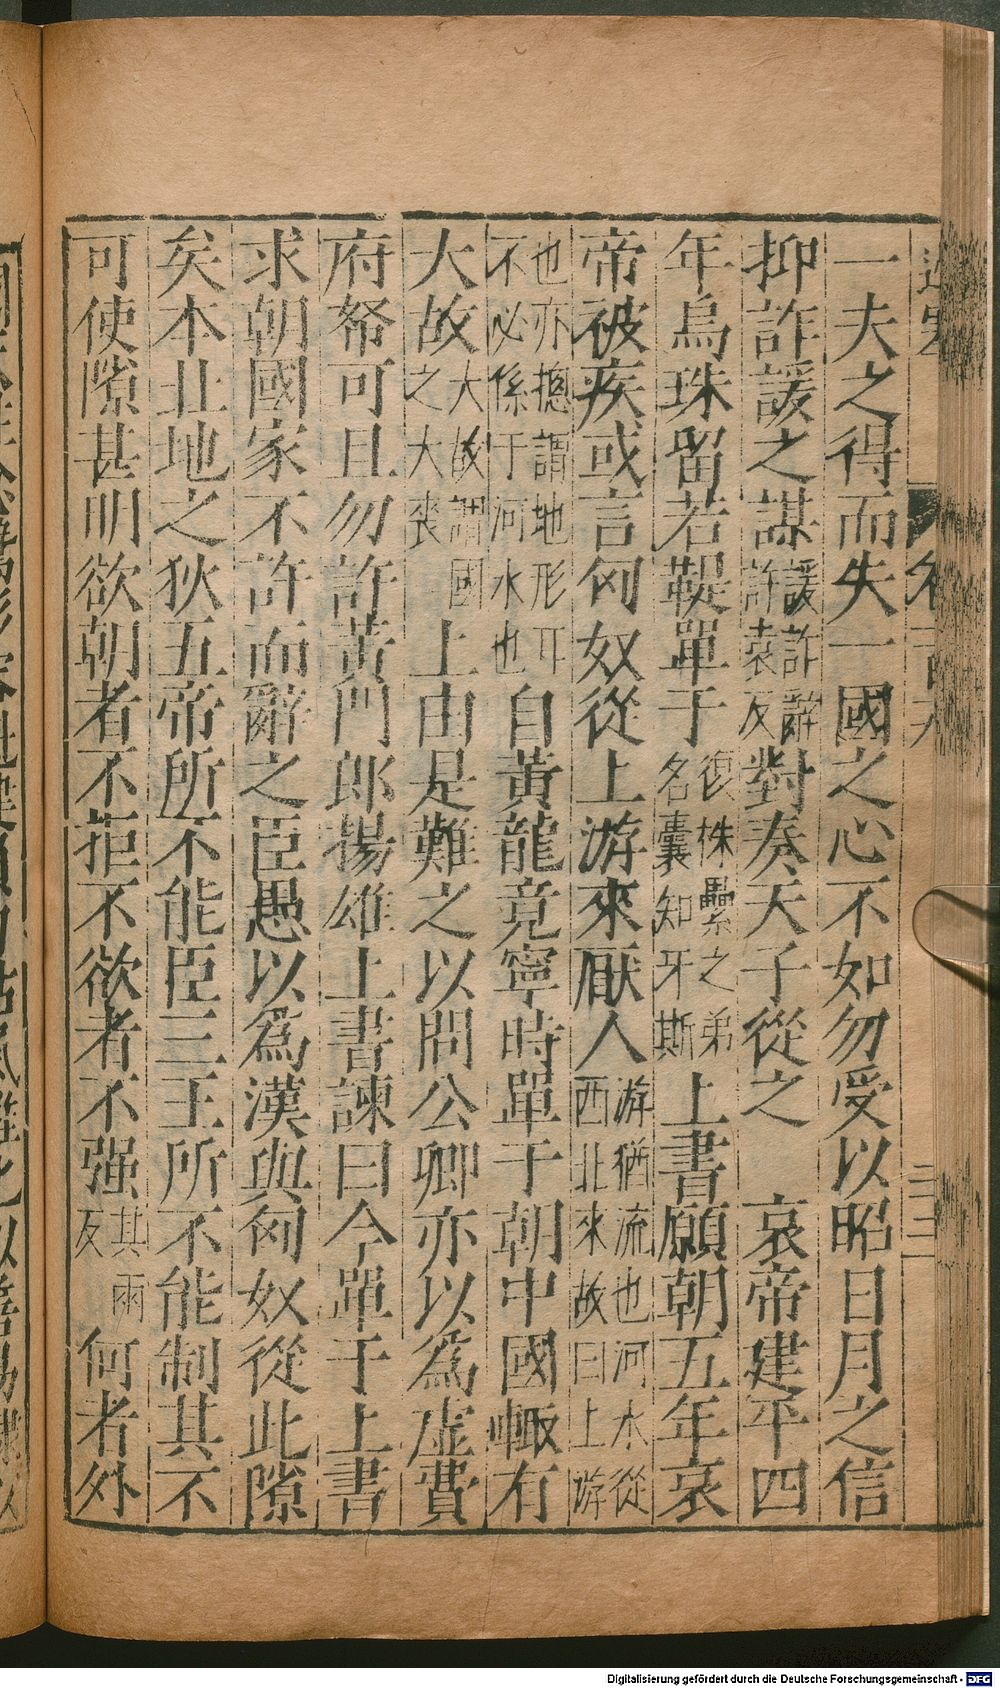 一夫之得而失一國之心不如勿受以昭日月之信
抑詐諼之謀諼詐辭許袁反對奏天子從之　哀帝建平四
年烏珠留若鞮單于復株纍之弟名囊知牙斯上書願朝五年哀
帝被疾或言匈奴從上游來厭人游猶流也河水從西北來故曰上游
也亦揔謂地形耳不必係于河水也自黃龍竟寧時單于朝中國輙有
大故大故謂國之大喪上由是難之以問公卿亦以爲虛費
府帑可且勿許黃門郎揚雄上書諫曰今單于上書
求朝國家不許而辭之臣愚以爲漢與匈奴從此隙
矣本北地之狄五帝所不能臣三王所不能制其不
可使隙甚明欲朝者不拒不欲者不强其兩反何者外
Digitalisierung gefördert durch die Deutsche Forschungsgemeinschaft - DFG